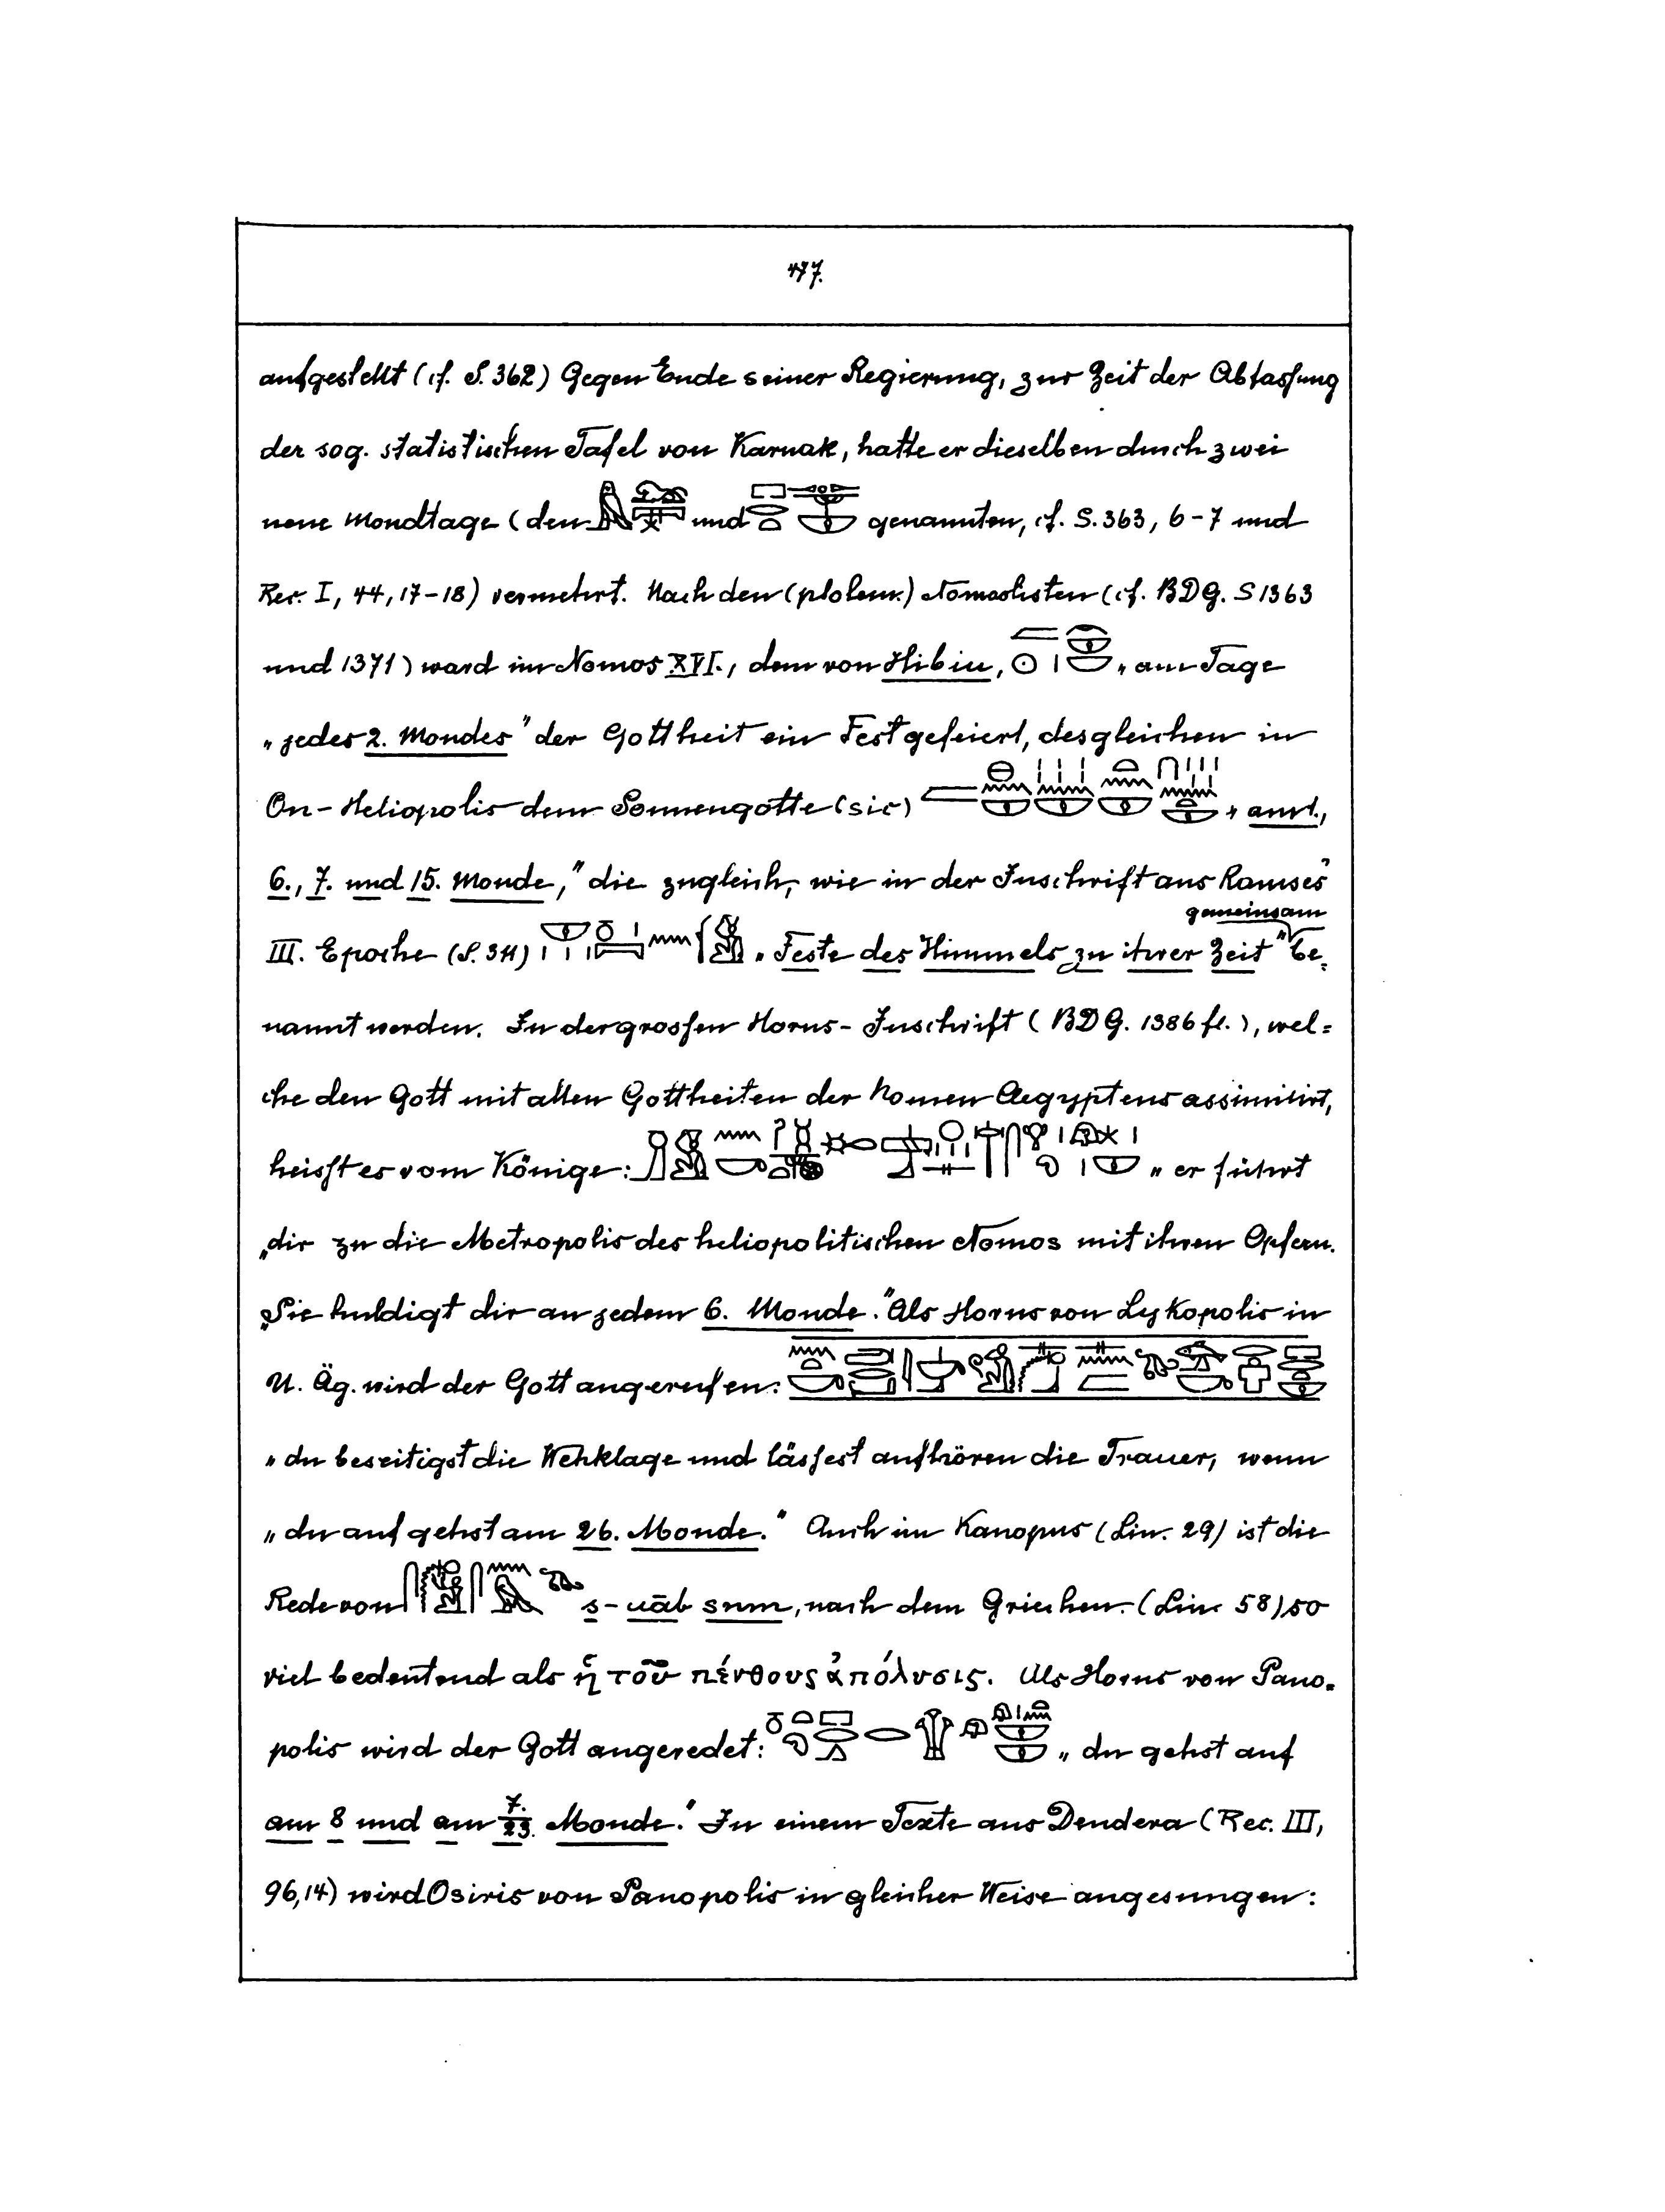 477.
aufgestellt (cf. S. 362) Gegen Ende seiner Regierung, zur Zeit der Abfassung
der sog. statistischen Tafel von Karnak, hatte er dieselben durch zwei
neue Mondtage (den und genannten, cf. S. 363, 6-7 und
Rec. I, 44, 17-18) vermehrt. Nach den (ptolem.) Nomoslisten (cf. BDG. S 1363
und 1371) ward im Nomos XVI., dem von Hibiu, „am Tage
„jedes 2. Mondes" der Gottheit ein Fest gefeiert, desgleichen in
On-Heliopolis dem Sonnengotte (sic) „am 1.,
6., 7. und 15. Monde," die zugleich, wie in der Inschrift aus Ramses'
gemeinsam
III. Epoche (S. 311) „Feste des Himmels zu ihrer Zeit" be-
nannt werden. In der grossen Horus-Inschrift (BDG. 1386 fl.), wel-
che den Gott mit allen Gottheiten der Nomen Aegyptens assimilirt,
heisst es vom Könige: „er führt
„dir zu die Metropolis des heliopolitischen Nomos mit ihren Opfern.
„Sie huldigt dir an jedem 6. Monde." Als Horus von Lykopolis in
U. Äg. wird der Gott angerufen:
„du beseitigst die Wehklage und lässest aufhören die Trauer, wenn
„du aufgehst am 26. Monde." Auch im Kanopus (Lin. 29) ist die
Rede von s-uāb snm, nach dem Griechen. (Lin. 58) so
viel bedeutend als ἡ τοῦ πένθους ἀπόλυσις. Als Horus von Pano-
polis wird der Gott angeredet: „du gehst auf
am 8 und am 7./23. Monde." In einem Texte aus Dendera (Rec. III,
96,14) wird Osiris von Panopolis in gleicher Weise angesungen: